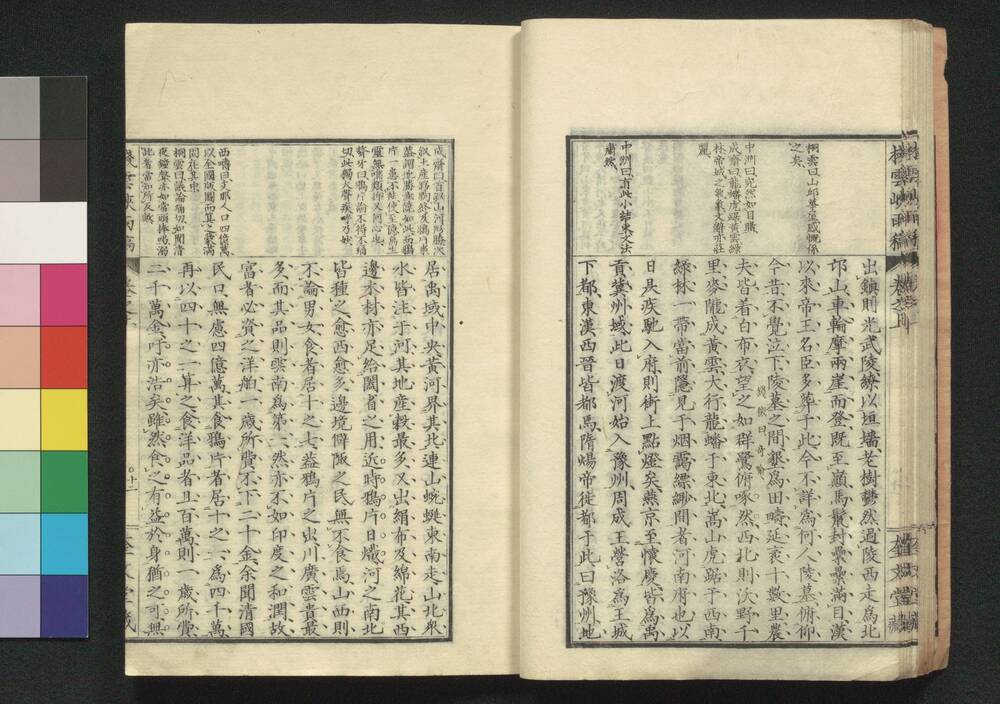 棧雲峽雨稿
桐雲曰山邱摹並感慨係
之矣
中洲曰宛然如目睹
成齋曰龍蟠虎踞黃雲綠
林帝城之氣象文辭亦壯
麗
中洲曰有此小結束文法
肅然
出鎮則光武陵繚以垣墻老樹鬱然過陵西走爲北
邙山車輪摩兩崖而登既至巔馬鬣封纍纍滿目漢
以來帝王名臣多葬于此今不詳爲何人陵墓俯仰
今昔不覺泣下陵墓之間墾爲田疇延袤十數里農
夫皆着白布衣望之如群鷺俯啄然西北則沃野千
里麥隴成黃雲大行龍蟠于東北嵩山虎踞于西南
綠林一帶當前隱見于烟靄縹緲間者河南府也以
日昃疾馳入府則街上點燈矣燕京至懷慶皆爲禹
貢冀州域此日渡河始入豫州周成王營洛爲王城
下都東漢西晉皆都焉隋煬帝徙都于此曰豫州地
成齋曰首敘山河形勝次
敘土産穀物終及鴉片東
西嶹曰文明人口四億萬
以全國版圖而其之霸滿
桐雲曰議論痛切如聞清
居禹域中央黃河界其北連山蜿蜒東南走山北衆
水皆注于河其地産穀最多又出絹布及綿花其西
邊木材亦足給闔省之用近時鴉片日熾河之南北
皆種之愈西愈多邊境僻陬之民無不食焉山西則
不論男女食者居十之七蓋鴉片之出川廣雲貴最
多而其品則雲南爲第一然亦不如印度之和潤故
富者必資之洋舶一歲所費不下二十金余聞清國
民口無慮四億萬其食鴉片者居十之一爲四千萬
再以四十之二算之食洋品者且二百萬則一歲所費
二千萬金吁亦浩矣雖然食之有益於身猶之可無